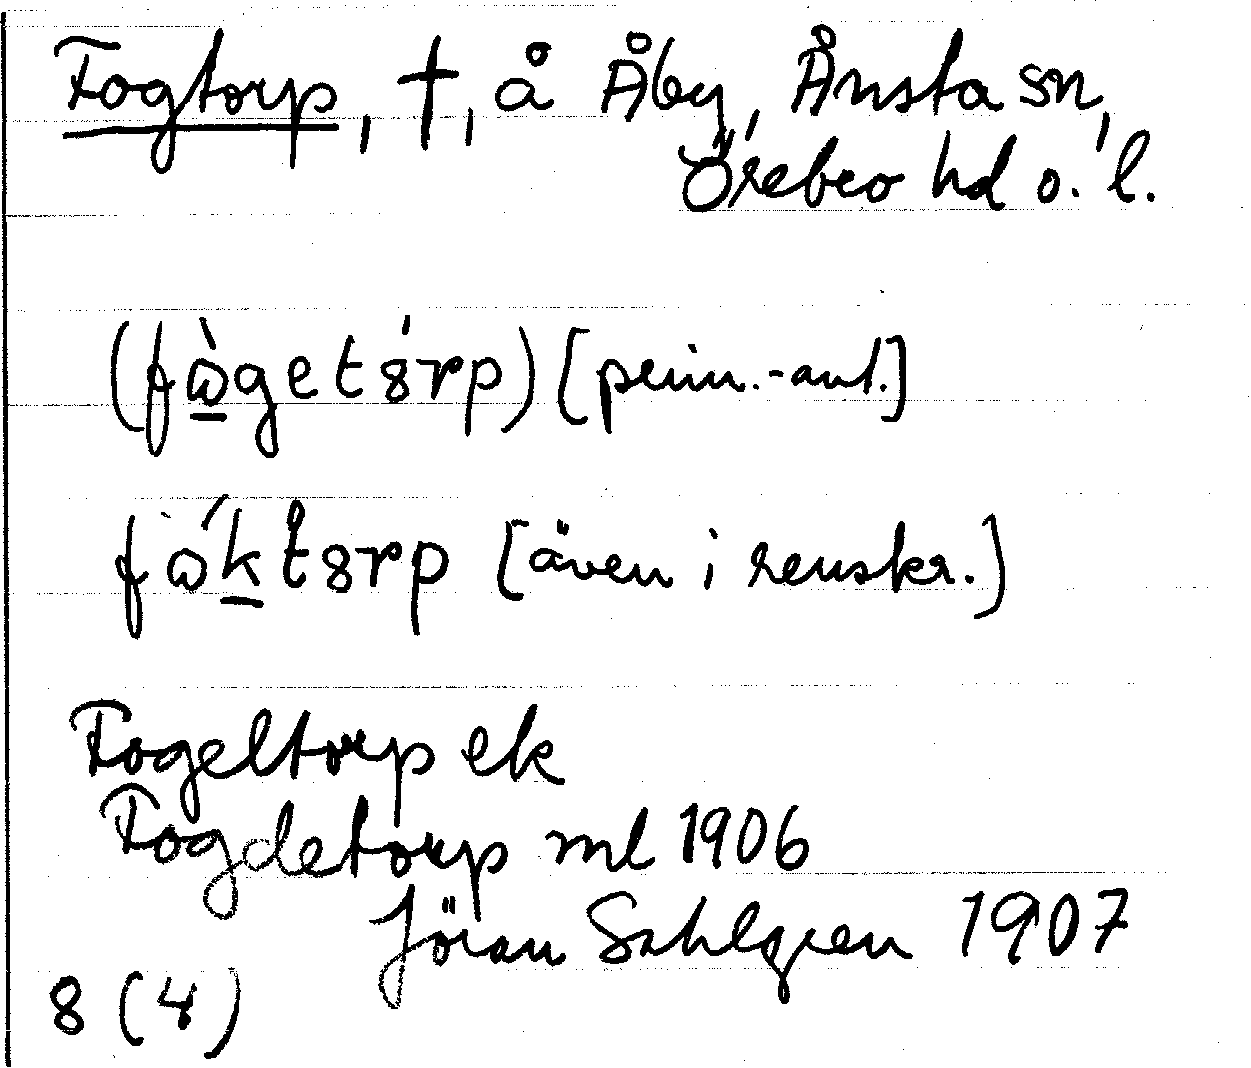 Fogtorp, †, å Åby, Ånsta sn,
Örebro hd o. l.
(fὼgetȣ́rp) [prim.-ant.]
fωʹktȣrp [även i renskr.]
Fogeltorp ek
Fogdetorp ml 1906
Jöran Sahlgren 1907
8 (4)